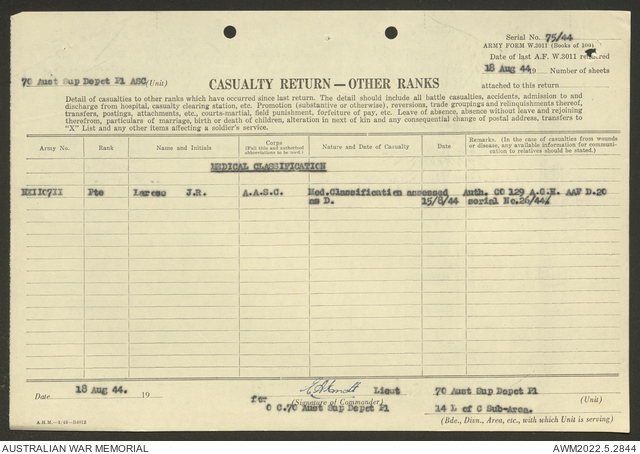 Serial No. 75/44
ARMY FORM W.3011 (Books of 100)
Date of last A.F. W.3011 required
18 Aug 44 19 Number of sheets
70 Aust Sup Depot Pl ASC (Unit)
CASUALTY RETURN—OTHER RANKS
attached to this return
Detail of casualties to other ranks which have occurred since last return. The detail should include all battle casualties, accidents, admission to and
discharge from hospital, casualty clearing station, etc. Promotion (substantive or otherwise), reversions, trade groupings and relinquishments thereof,
transfers, postings, attachments, etc., courts-martial, field punishment, forfeiture of pay, etc. Leave of absence, absence without leave and rejoining
therefrom, particulars of marriage, birth or death of children, alteration in next of kin and any consequential change of postal address, transfers to
"X" List and any other items affecting a soldier's service.
Army No. Rank Name and Initials Corps (Full title and authorised abbreviations to be used) Nature and Date of Casualty Date Remarks. (In the case of casualties from wounds or disease, any available information for communication to relatives should be stated.)
MEDICAL CLASSIFICATION
Pte J.R. A.A.S.C. Med.Classification assessed Auth. CO 129 A.G.H. AAF D.20
as D. 15/8/44 serial No.26/44.
Date 18 Aug 44. 19 Lieut 70 Aust Sup Depot Pl (Unit)
for (Signature of Commander)
O C.70 Aust Sup Depot Pl 14 L of C Sub-Area.
(Bde., Divn., Area, etc., with which Unit is serving)
AUSTRALIAN WAR MEMORIAL AWM2022.5.2844